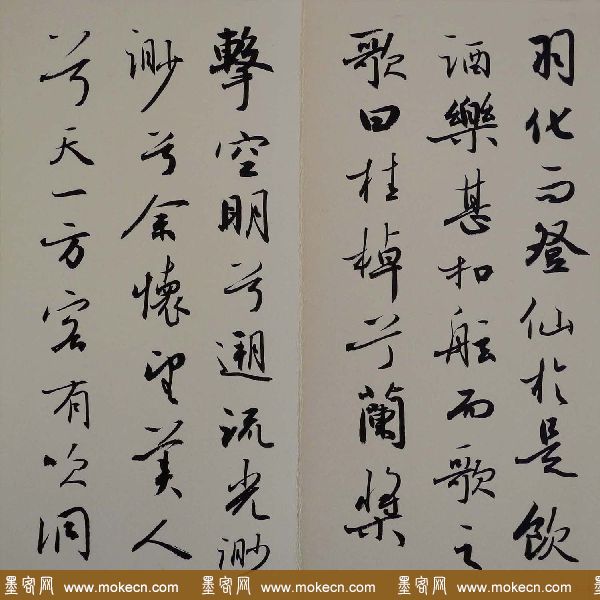 羽化而登仙於是飲
酒樂甚扣舷而歌之
歌曰桂棹兮蘭槳
擊空明兮遡流光渺
渺兮余懷望美人
兮天一方客有吹洞
墨客网 www.mokecn.com 墨客网 www.mokecn.com 墨客网 www.mokecn.com